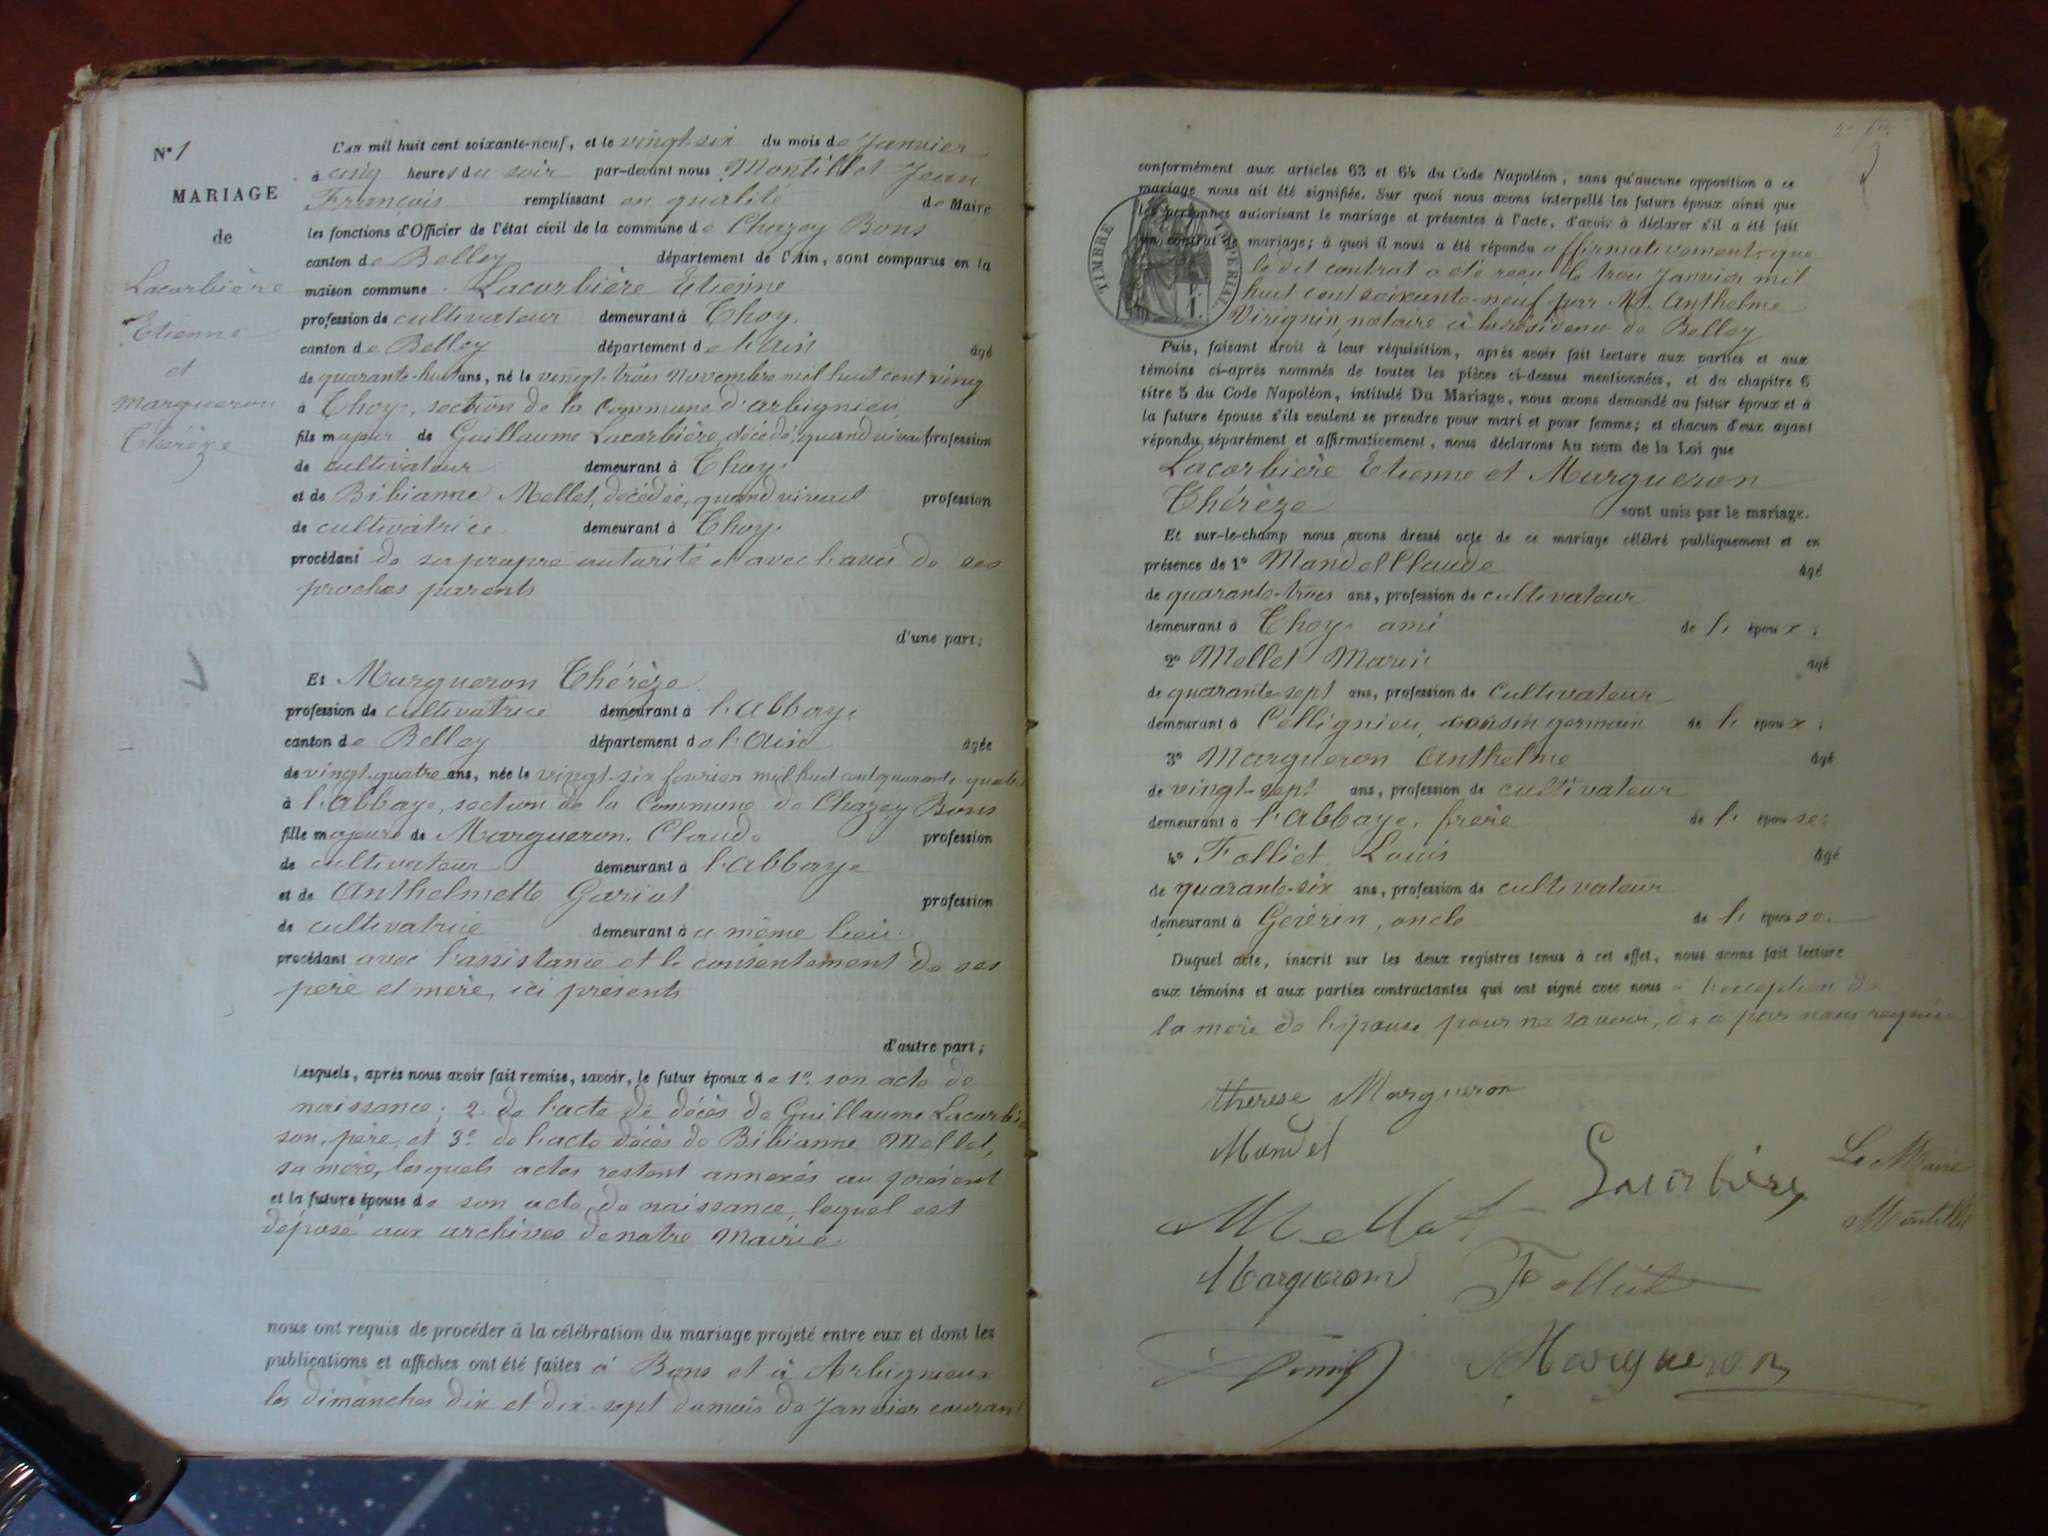 N° 1
MARIAGE
de
Lacorbière
Etienne
et
Margueron
Thérèze
L'an mil huit cent soixante-neuf, et le vingt-six du mois de Janvier
à cinq heures du soir par-devant nous Montillet Jean
François remplissant en qualité de Maire
les fonctions d'Officier de l'état civil de la commune de Chazey Bons
canton de Belley département de l'Ain, sont comparus en la
maison commune Lacorbière Etienne
profession de cultivateur demeurant à Thoys
canton de Belley département de l'Ain âgé
de quarante-huit ans, né le vingt-trois Novembre mil huit cent vingt
à Thoys, section de la Commune d'Arbignieu,
fils majeur de Guillaume Lacorbière, décédé, quand vivait profession
de cultivateur demeurant à Thoys
et de Bibianne Mellet, décédée, quand vivait profession
de cultivatrice demeurant à Thoys
procédant de sa propre autorité et avec l'avis de ses
proches parents
d'une part;
Et Margueron Thérèze
profession de cultivatrice demeurant à l'Abbaye
canton de Belley département de l'Ain âgée
de vingt-quatre ans, née le vingt-six février mil huit cent quarante-quatre
à l'Abbaye, section de la Commune de Chazey Bons
fille majeure de Margueron Claude profession
de cultivateur demeurant à l'Abbaye
et de Anthelmette Gariot profession
de cultivatrice demeurant au même lieu
procédant avec l'assistance et le consentement de ses
père et mère, ici présents
d'autre part;
Lesquels, après nous avoir fait remise, savoir, le futur époux de 1° son acte de
naissance; 2° de l'acte de décès de Guillaume Lacorbière
son père, et 3° de l'acte décès de Bibianne Mellet,
sa mère, lesquels actes restent annexés au présent
et la future épouse de son acte de naissance, lequel est
déposé aux archives de notre Mairie
nous ont requis de procéder à la célébration du mariage projeté entre eux et dont les
publications et affiches ont été faites à Bons et à Arbignieux
les dimanches dix et dix-sept du mois de Janvier courant
conformément aux articles 63 et 64 du Code Napoléon, sans qu'aucune opposition à ce
mariage nous ait été signifiée. Sur quoi nous avons interpellé les futurs époux ainsi que
les personnes autorisant le mariage et présentes à l'acte, d'avoir à déclarer s'il a été fait
un contrat de mariage; à quoi il nous a été répondu affirmativement, que
TIMBRE IMPÉRIAL
le dit contrat a été reçu le trois Janvier mil
huit cent soixante-neuf par Mt. Anthelme
Virignin, notaire à la résidence de Belley
Puis, faisant droit à leur réquisition, après avoir fait lecture aux parties et aux
témoins ci-après nommés de toutes les pièces ci-dessus mentionnées, et du chapitre 6
titre 5 du Code Napoléon, intitulé Du Mariage, nous avons demandé au futur époux et à
la future épouse s'ils veulent se prendre pour mari et pour femme; et chacun d'eux ayant
répondu séparément et affirmativement, nous déclarons Au nom de la Loi que
Lacorbière Etienne et Margueron
Thérèze sont unis par le mariage.
Et sur-le-champ nous avons dressé acte de ce mariage célébré publiquement et en
présence de 1° Mandel Claude âgé
de quarante-trois ans, profession de cultivateur
demeurant à Thoys ami de l' époux;
2° Mellet Marin âgé
de quarante-sept ans, profession de cultivateur
demeurant à Collignieu, cousin germain de l' époux;
3° Margueron Anthelme âgé
de vingt-sept ans, profession de cultivateur
demeurant à l'Abbaye, frère de l' épouse;
4° Folliet Louis âgé
de quarante-six ans, profession de cultivateur
demeurant à Gevrin, oncle de l' épouse.
Duquel acte, inscrit sur les deux registres tenus à cet effet, nous avons fait lecture
aux témoins et aux parties contractantes qui ont signé avec nous à l'exception de
la mère de l'épouse pour ne savoir, de ce par nous requise
therese Margueron
Mandel
Lacorbière
Le Maire
Montillet
Mellet
Margueron
Folliet
Margueron